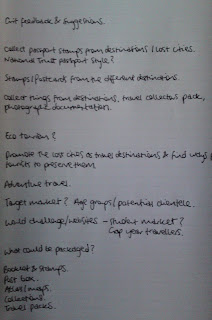 Crit feedback & suggestions.
Collect passport stamps from destinations / lost cities.
National Trust passport style?
Stamps/Postcards from the different destinations.
Collect things from destinations, travel collectors pack,
photographic documentation.
Eco tourism?
Promote the lost cities as travel destinations & find ways
tourists to preserve them.
Adventure travel.
Target market? Age groups/potential clientele.
World challenge/websites - student market?
Gap year travellers.
What could be packaged?
Booklet & stamps.
Post box.
Atlas/maps.
Collections.
Travel packs.